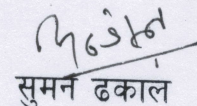 सुमन ढकाल